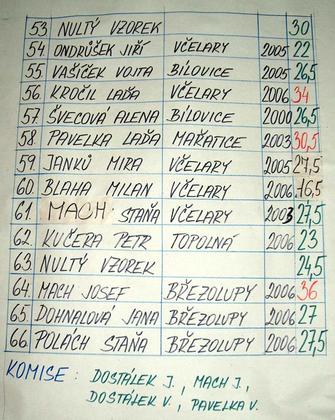 53 NULTÝ VZOREK 30
54 ONDRŮŠEK JIŘÍ VČELARY 2005 22
55 VAŠÍČEK VOJTA BÍLOVICE 2005 26,5
56 KROČIL LAĎA VČELARY 2006 34
57 ŠVECOVÁ ALENA BÍLOVICE 2000 26,5
58 PAVELKA LAĎA MAŘATICE 2003 30,5
59 JANKŮ MIRA VČELARY 2005 27,5
60 BLAHA MILAN VČELARY 2006 16,5
61. MACH STAŇA VČELARY 2003 27,5
62. KUČERA PETR TOPOLNÁ 2006 23
63 NULTÝ VZOREK 24,5
64. MACH JOSEF BŘEZOLUPY 2006 36
65 DOHNALOVÁ JANA BŘEZOLUPY 2006 27
66. POLÁCH STAŇA BŘEZOLUPY 2006 27,5
KOMISE : DOSTÁLEK J., MACH J.,
DOSTÁLEK V., PAVELKA V.